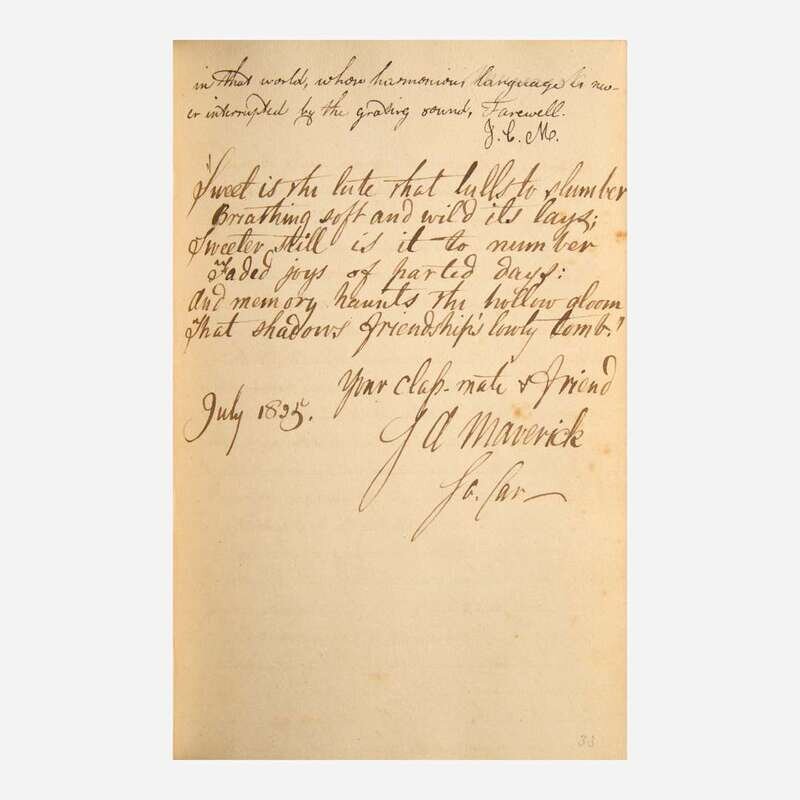 in that world, whose harmonious language is nev-
er interrupted by the grating sound, Farewell.
J. C. M.
"Sweet is the lute that lulls to slumber
Breathing soft and wild its lays;
Sweeter still is it to number
Faded joys of parted days:
And memory haunts the hollow gloom
That shadows friendship's lowly tomb."
Your class-mate & friend
July 1825.
S A Maverick
So. Car
33